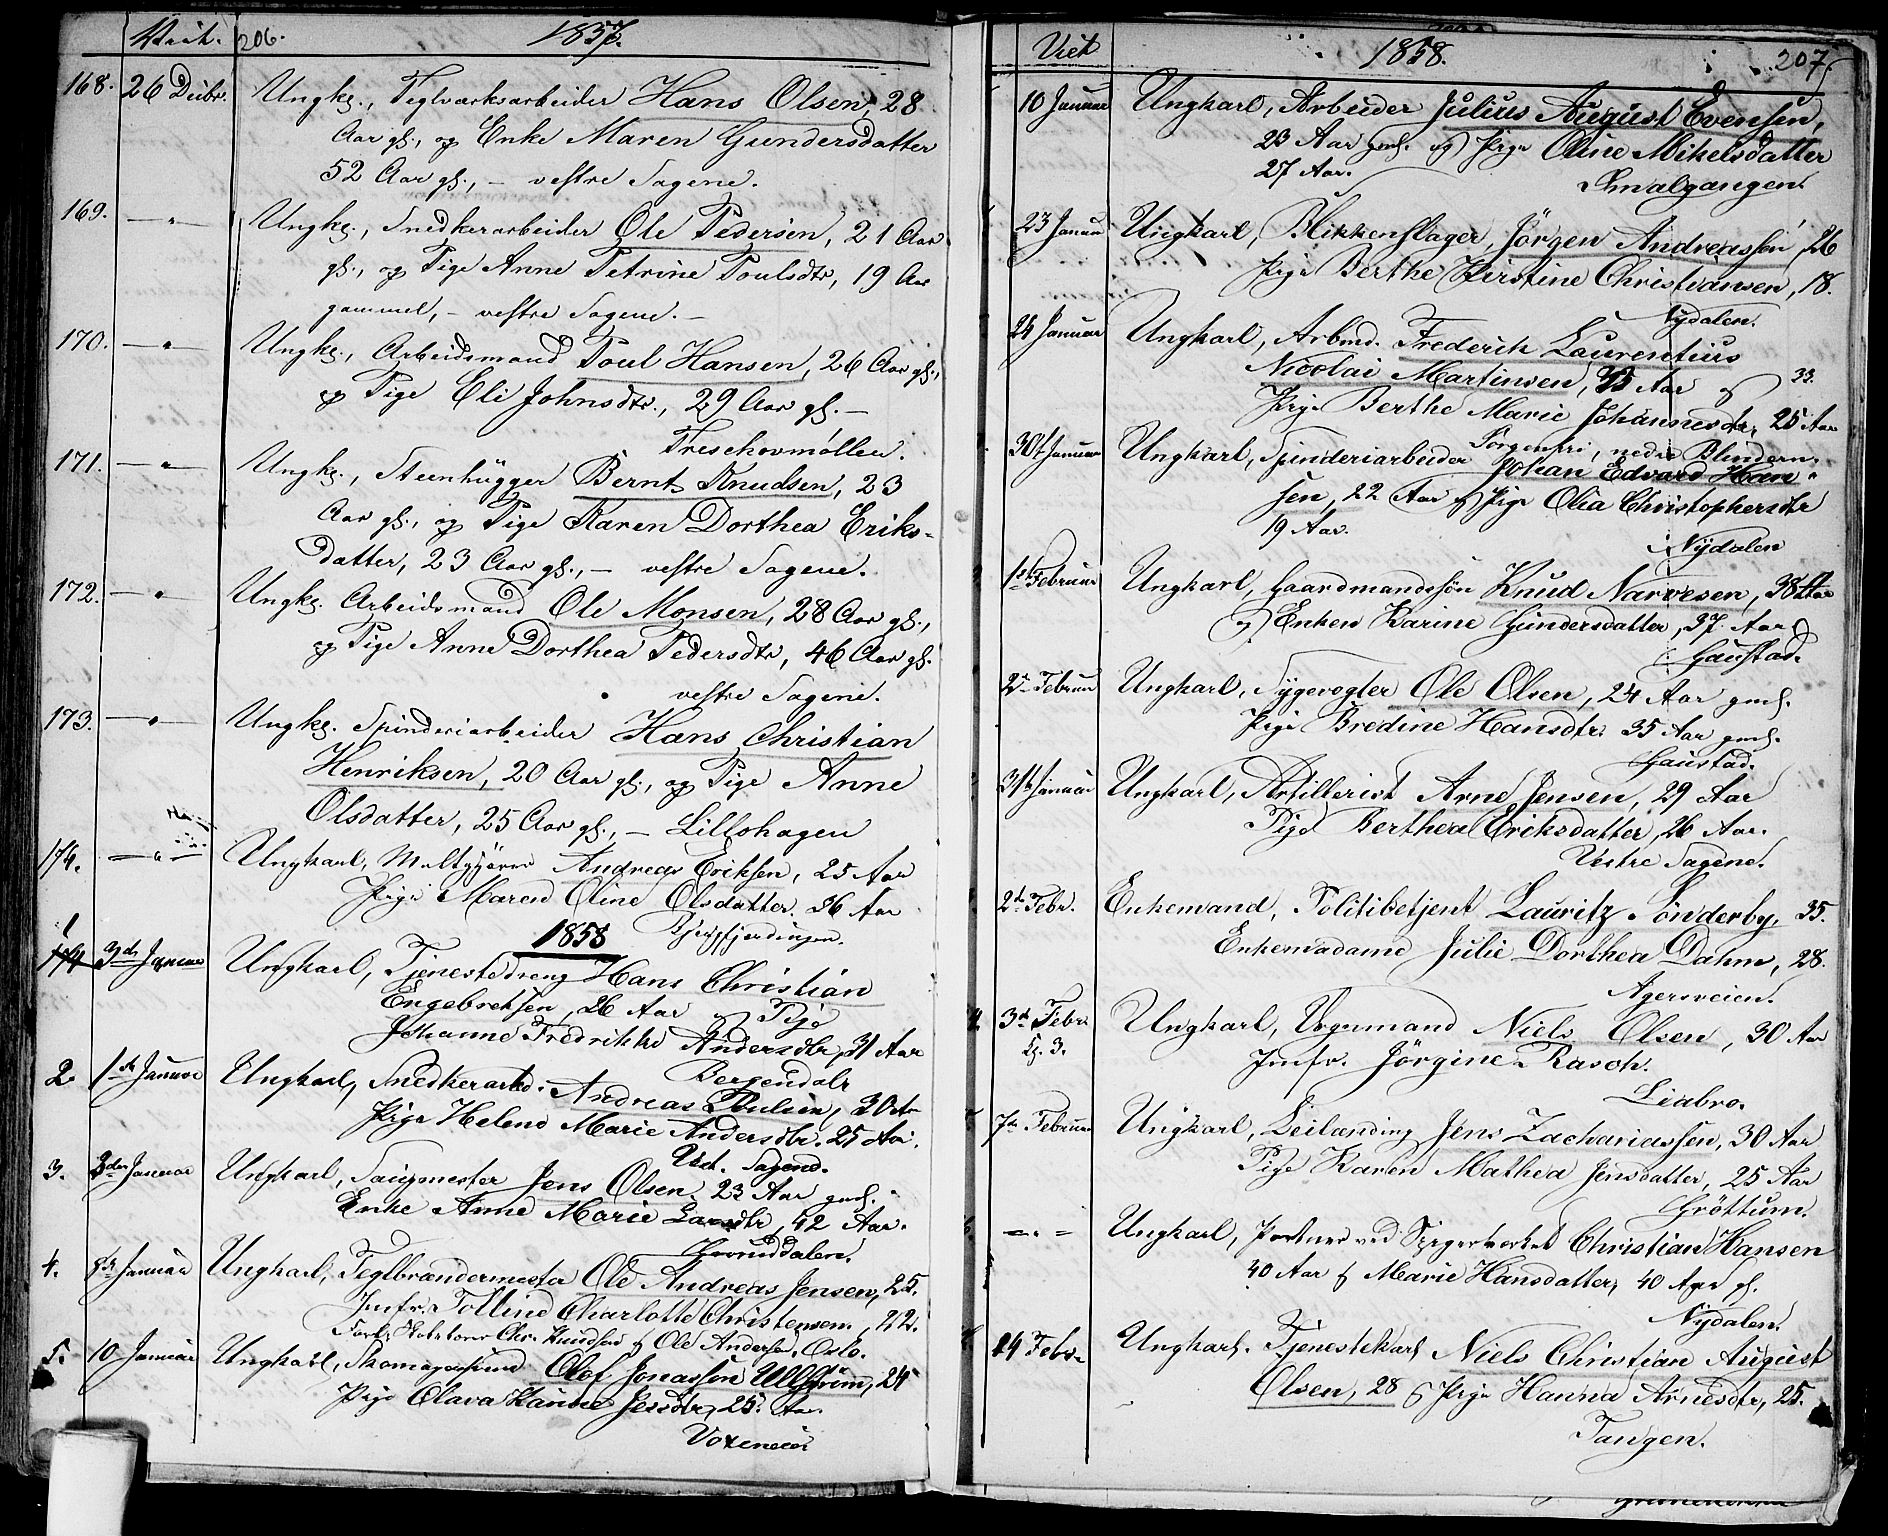 Viet. 206. 1857.
168. 26 Decbr. Ungk., Teglværksarbeider Hans Olsen, 28
Aar gl., og Enke Maren Gundersdatter
52 Aar gl., – vestre Sagene.
169. — " — Ungk., Snedkerarbeider Ole Pedersen, 21 Aar
gl., og Pige Anne Petrine Poulsdtr, 19 Aar
gammel, – vestre Sagene. –
170. — " — Ungk., Arbeidsmand Poul Hansen, 26 Aar gl.,
og Pige Eli Johnsdtr., 29 Aar gl. –
Treschowmøllen.
171. — " — Ungk., Steenhugger Bernt Knudsen, 23
Aar gl., og Pige Karen Dorthea Eriks-
datter, 23 Aar gl., – vestre Sagene.
172. — " — Ungk. Arbeidsmand Ole Monsen, 28 Aar gl.,
og Pige Anne Dorthea Pedersdtr, 46 Aar gl.
vestre Sagene.
173. — " — Ungk. Spinderiarbeider Hans Christian
Henriksen, 20 Aar gl., og Pige Anne
Olsdatter, 25 Aar gl., – Lillohagen
174. — " — Ungkarl, Maltgjører Andreas Eriksen, 25 Aar
Pige Maren Oline Olsdatter. 36 Aar
1858
1 174 3die Januar Ungkarl, Tjenestedreng Hans Christian
Engebretsen, 26 Aar Pige
Johanne Fredrikke Andersdtr, 31 Aar
Bergendalr
2. 1ste Januar Ungkarl, Snedkerarbd. Andreas Poulsen, 30 Ar
Pige Helene Marie Andersdtr. 25 Aar.
Vest. Sagene.
3. 3die Januar Ungkarl, Saugmester Jens Olsen. 23 Aar gml.
Enke Anne Marie Larsdtr, 42 Aar.
Gruuddalen.
4. Januar Ungkarl, Teglbrændermester Ole Andreas Jensen, 25.
Jmfr. Tolline Charlotte Christensen, 22.
Forl. Chr. Knudsen & Ole Anderse, Oslo.
5. 10 Januar Ungkarl, Skomagersvend Olof Jonassen Ullström, 24
Pige Olava Hanne Jensdtr, 25. Aar.
Voxeneie
Viet 1858. 207
10 Januar Ungkarl, Arbeider Julius August Evensen,
23 Aar gml. og Pige Oline Mikelsdatter
27 Aar. Smalgangen.
23 Januar Ungkarl, Blikkenslager, Jörgen Andreassen, 26
Pige Berthe Kirstine Christiansen, 18.
Nydalen.
24 Januar Ungkarl, Arbmd. Frederik Laurentius
Nicolai Martinsen, 33 Aar & 33.
Pige Berthe Marie Johannesdtr, 25 Aar
Sorgenfri, nedre Blindern.
30t Januar Ungkarl, Spinderiarbeider Johan Edvard Han-
sen, 22 Aar & Pige Olia Christophersdtr
19 Aar. Nydalen
1ste Februar Ungkarl, Gaardmandssön Knud Narvesen, 38 Aar
& Enken Karine Gundersdatter, 37. Aar,
Gaustad.
2den Februar Ungkarl, Sygevogter Ole Olsen, 24 Aar gml.
Pige Bredine Hansdtr. 35 Aar gml.
Gaustad.
31te Januar Ungkarl, Artillerist Arne Jensen, 29 Aar
Pige Berthea Eriksdatter, 26 Aar.
Vestre Sagene.
2d Febr. Enkemand, Politibetjent Lauritz Sönderby, 35.
Enkemadame Julie Dorthea Dahm, 28.
Agersveien.
3d Febr. Ungkarl, Vognmand Niels Olsen, 30 Aar
Jmfr. Jörgine Rasch.
Liabro.
7de Februar Ungkarl, Leilænding Jens Zachariassen, 30 Aar
Pige Karen Mathea Jensdatter, 25 Aar
Gröttum.
— " — Ungkarl, Portner ved Christian Hansen
40 Aar & Marie Hansdatter, 40 Aar gl.
Nydalen.
14 Febr. Ungkarl. Tjenestekarl Niels Christian August
Olsen, 28 & Pige Hanna Arnesdtr, 25.
Tangen.